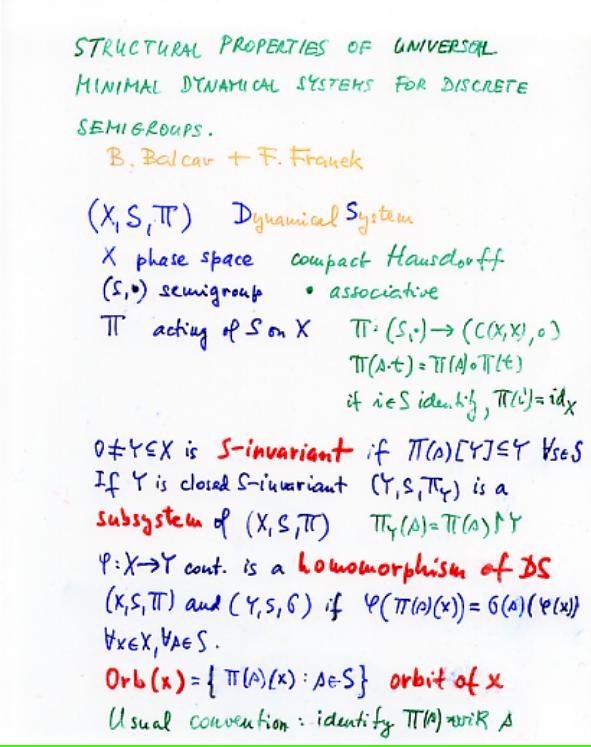 STRUCTURAL PROPERTIES OF UNIVERSAL
MINIMAL DYNAMICAL SYSTEMS FOR DISCRETE
SEMIGROUPS.
B. Balcar + F. Franek
(X, S, π) Dynamical System
X phase space compact Hausdorff
(S,•) semigroup • associative
π acting of S on X π: (S,•) → (C(X,X),∘)
π(s·t) = π(s)∘π(t)
if i∈S identity, π(i) = id_X
0≠Y⊆X is S-invariant if π(s)[Y]⊆Y ∀s∈S
If Y is closed S-invariant (Y, S, π_Y) is a
subsystem of (X, S, π) π_Y(s) = π(s)↾Y
φ: X→Y cont. is a homomorphism of DS
(X, S, π) and (Y, S, σ) if φ(π(s)(x)) = σ(s)(φ(x))
∀x∈X, ∀s∈S.
Orb(x) = { π(s)(x) : s∈S } orbit of x
Usual convention: identify π(s) with s